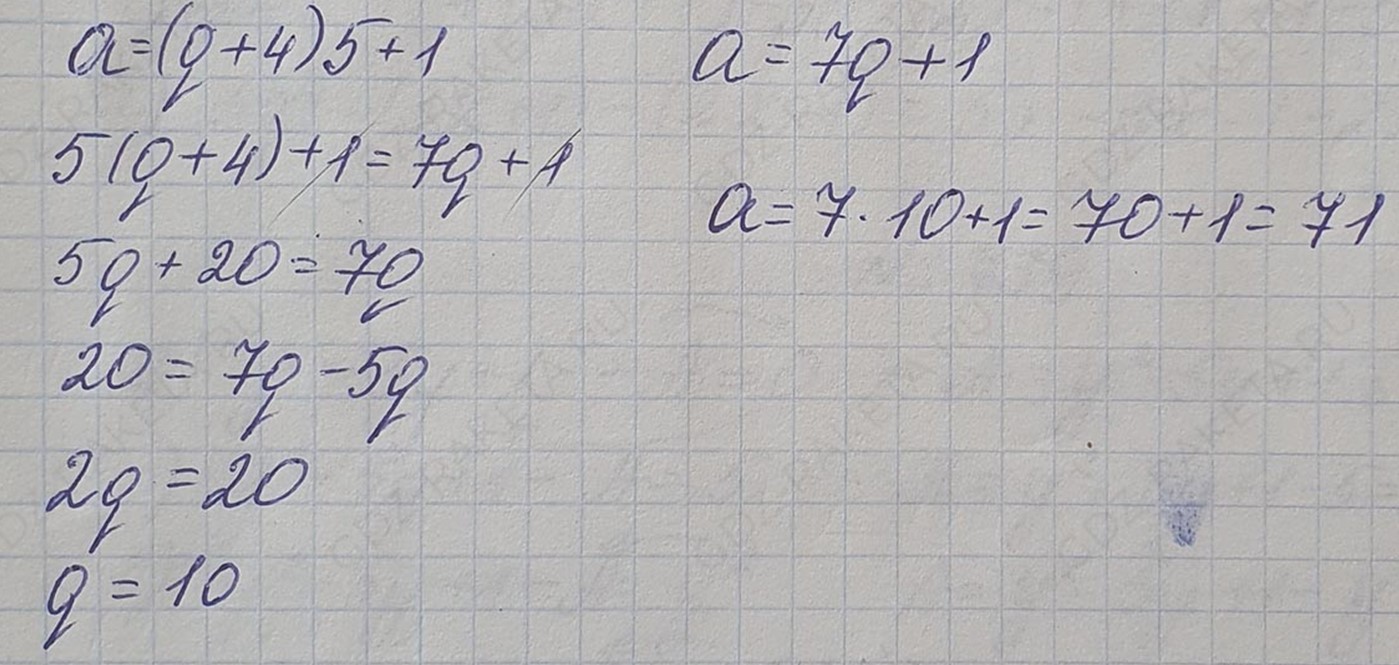 a=(q+4)5+1
5(q+4)+1=7q+1
5q+20=7q
20=7q-5q
2q=20
q=10
a=7q+1
a=7·10+1=70+1=71